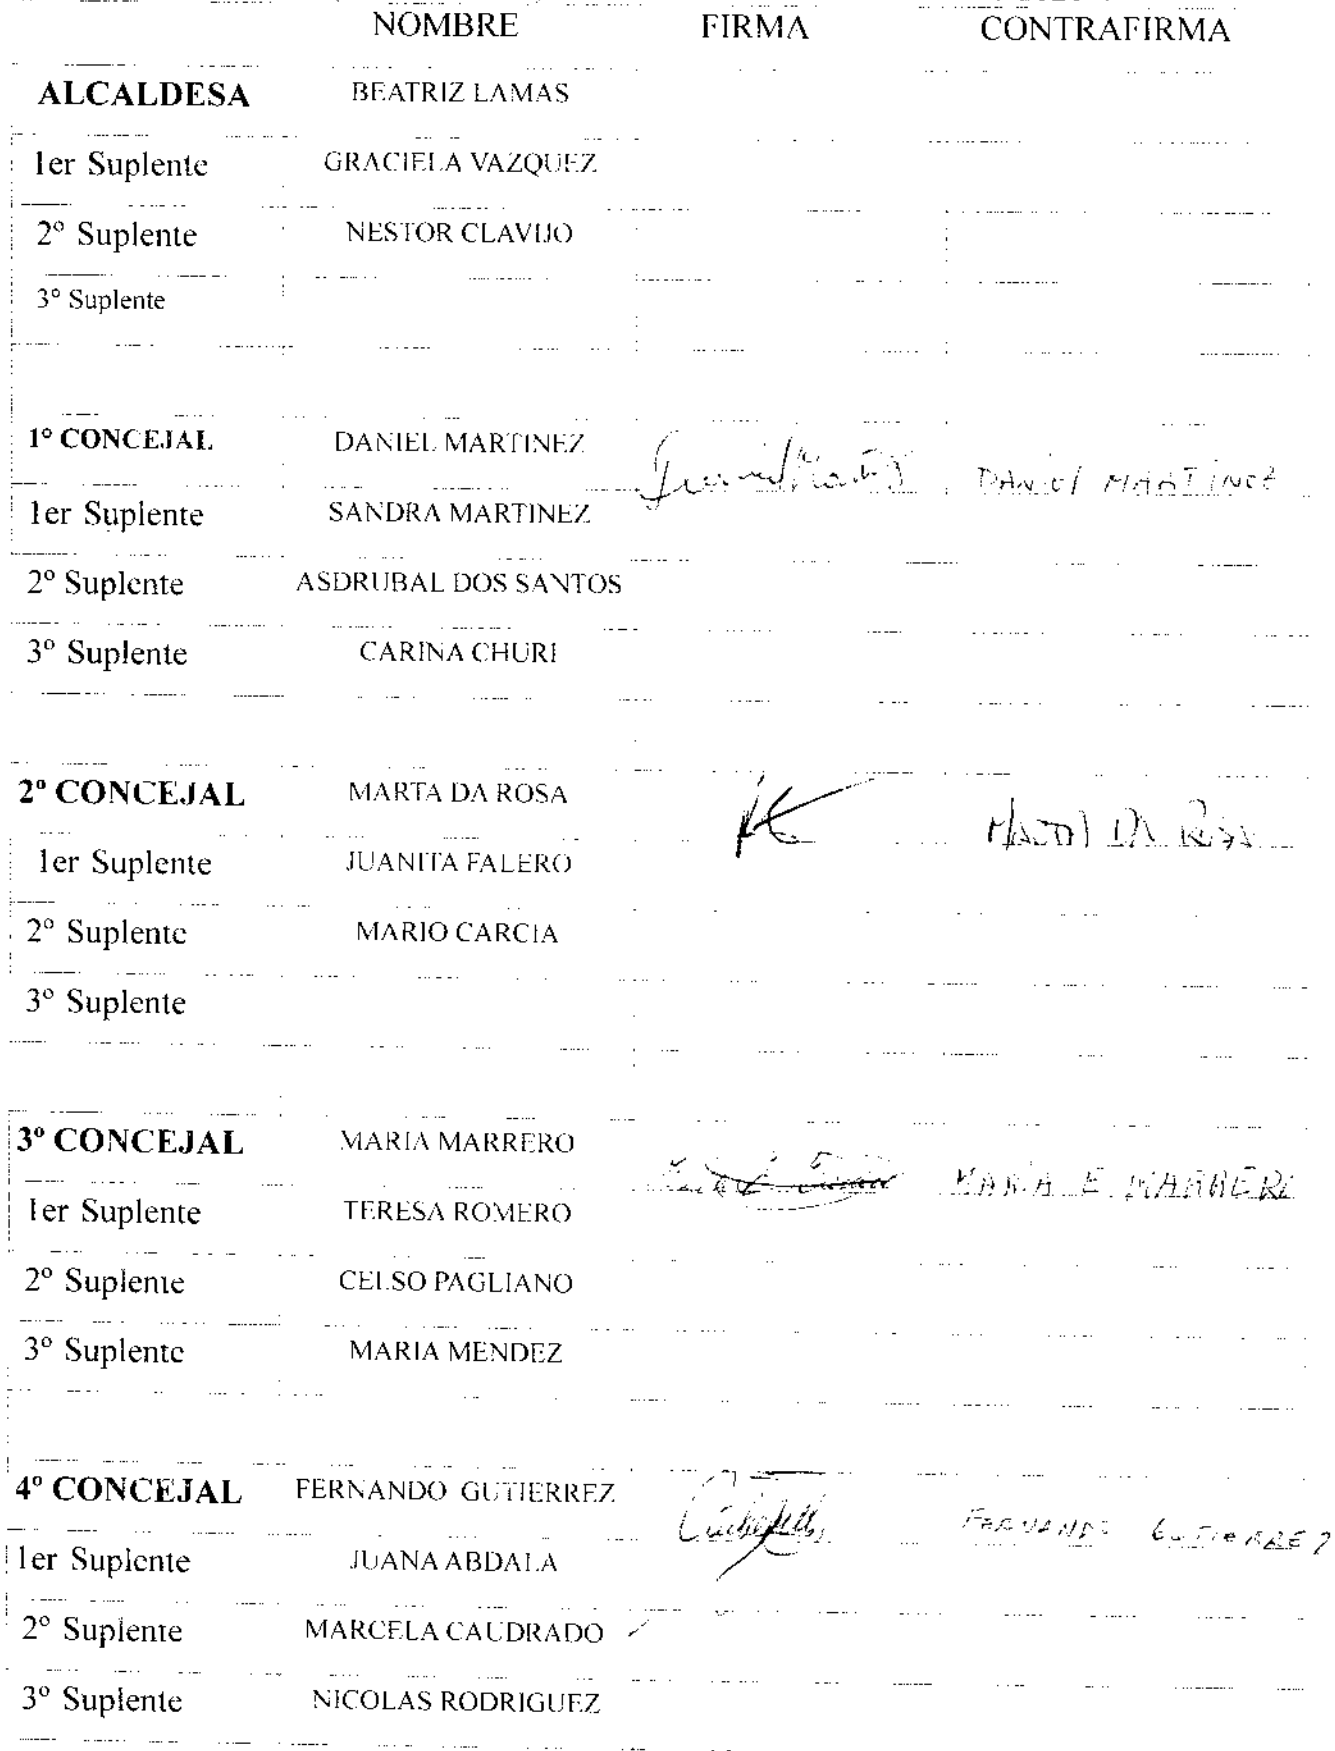 NOMBRE FIRMA CONTRAFIRMA
ALCALDESA BEATRIZ LAMAS
1er Suplente GRACIELA VAZQUEZ
2º Suplente NESTOR CLAVIJO
3º Suplente
1º CONCEJAL DANIEL MARTINEZ
DANIEL MARTINEZ
1er Suplente SANDRA MARTINEZ
2º Suplente ASDRUBAL DOS SANTOS
3º Suplente CARINA CHURI
2º CONCEJAL MARTA DA ROSA
MARTA DA ROSA
1er Suplente JUANITA FALERO
2º Suplente MARIO CARCIA
3º Suplente
3º CONCEJAL MARIA MARRERO
MARIA E. MARRERO
1er Suplente TERESA ROMERO
2º Suplente CELSO PAGLIANO
3º Suplente MARIA MENDEZ
4º CONCEJAL FERNANDO GUTIERREZ
FERNANDO GUTIERREZ
1er Suplente JUANA ABDALA
2º Suplente MARCELA CAUDRADO
3º Suplente NICOLAS RODRIGUEZ